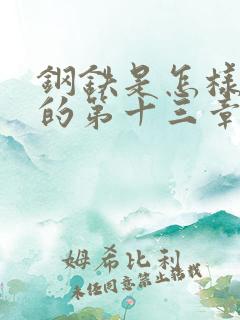 鋼鉄是怎樣
的第十三章
姆希比利
未経同意禁止搭载